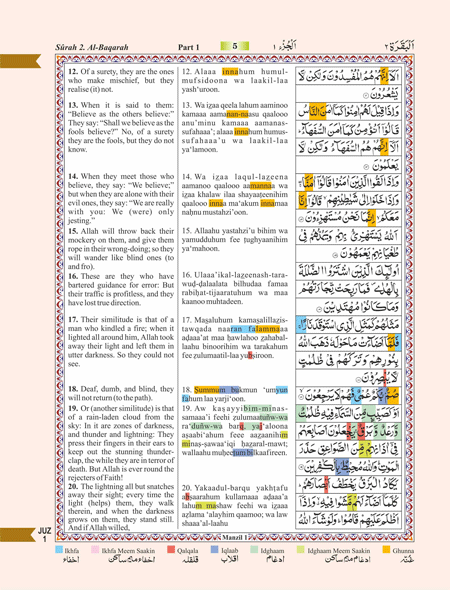 Sûrah 2. Al-Baqarah
Part 1
5
اَلْجُزْء ١
اَلْبَقَرَة ٢
12. Of a surety, they are the ones
who make mischief, but they
realise (it) not.
13. When it is said to them:
"Believe as the others believe:"
They say: "Shall we believe as the
fools believe?" No, of a surety
they are the fools, but they do not
know.
14. When they meet those who
believe, they say: "We believe;"
but when they are alone with their
evil ones, they say: "We are really
with you: We (were) only
jesting."
15. Allah will throw back their
mockery on them, and give them
rope in their wrong-doing; so they
will wander like blind ones (to
and fro).
16. These are they who have
bartered guidance for error: But
their traffic is profitless, and they
have lost true direction.
17. Their similitude is that of a
man who kindled a fire; when it
lighted all around him, Allah took
away their light and left them in
utter darkness. So they could not
see.
18. Deaf, dumb, and blind, they
will not return (to the path).
19. Or (another similitude) is that
of a rain-laden cloud from the
sky: In it are zones of darkness,
and thunder and lightning: They
press their fingers in their ears to
keep out the stunning thunder-
clap, the while they are in terror of
death. But Allah is ever round the
rejecters of Faith!
20. The lightning all but snatches
away their sight; every time the
light (helps) them, they walk
therein, and when the darkness
grows on them, they stand still.
And if Allah willed,
12. Alaaa innahum humul-
mufsidoona wa laakil-laa
yash'uroon.
13. Wa izaa qeela lahum aaminoo
kamaaa aamanan-naasu qaalooo
anu'minu kamaaa aamanas-
sufahaaa'; alaaa innahum humus-
sufahaaa'u wa laakil-laa
ya'lamoon.
14. Wa izaa laqul-lazeena
aamanoo qaalooo aamannaa wa
izaa khalaw ilaa shayaaṭeenihim
qaalooo innaa ma'akum innamaa
naḥnu mustahzi'oon.
15. Allaahu yastahzi'u bihim wa
yamudduhum fee ṭughyaanihim
ya'mahoon.
16. Ulaaa'ikal-lazeenash-tara-
wuḍ-ḍalaalata bilhudaa famaa
rabiḥat-tijaaratuhum wa maa
kaanoo muhtadeen.
17. Maṣaluhum kamaṣalillaẓis-
tawqada naaran falammaaa
aḍaaa'at maa ḥawlahoo zahabal-
laahu binoorihim wa tarakahum
fee ẓulumaatil-laa yubṣiroon.
18. Ṣummum bukmun 'umyun
fahum laa yarji'oon.
19. Aw kaṣayyibim-minas-
samaaa'i feehi ẓulumaatuñw-wa
ra'duñw-wa barq, yaj'aloona
aṣaabi'ahum feee aazaanihim
minaṣ-ṣawaa'iqi ḥazaral-mawt;
wallaahu muḥeeṭum bilkaafireen.
20. Yakaadul-barqu yakhṭafu
abṣaarahum kullamaaa aḍaaa'a
lahum mashaw feehi wa izaaa
aẓlama 'alayhim qaamoo; wa law
shaaa'al-laahu
اَلَاۤ اِنَّهُمْ هُمُ الْمُفْسِدُوْنَ وَلٰكِنْ لَّا
يَشْعُرُوْنَ
وَاِذَا قِيْلَ لَهُمْ اٰمِنُوْا كَمَاۤ اٰمَنَ النَّاسُ
قَالُوْۤا اَنُؤْمِنُ كَمَاۤ اٰمَنَ السُّفَهَآءُ
اَلَاۤ اِنَّهُمْ هُمُ السُّفَهَآءُ وَلٰكِنْ لَّا
يَعْلَمُوْنَ
وَاِذَا لَقُوا الَّذِيْنَ اٰمَنُوْا قَالُوْۤا اٰمَنَّا
وَاِذَا خَلَوْا اِلٰى شَيٰطِيْنِهِمْ قَالُوْۤا اِنَّا
مَعَكُمْ اِنَّمَا نَحْنُ مُسْتَهْزِءُوْنَ
اَللّٰهُ يَسْتَهْزِئُ بِهِمْ وَيَمُدُّهُمْ فِيْ
طُغْيَانِهِمْ يَعْمَهُوْنَ
اُولٰٓئِكَ الَّذِيْنَ اشْتَرَوُا الضَّلٰلَةَ
بِالْهُدٰى فَمَا رَبِحَتْ تِّجَارَتُهُمْ
وَمَا كَانُوْا مُهْتَدِيْنَ
مَثَلُهُمْ كَمَثَلِ الَّذِي اسْتَوْقَدَ نَارًا
فَلَمَّاۤ اَضَآءَتْ مَا حَوْلَهٗ ذَهَبَ اللّٰهُ
بِنُوْرِهِمْ وَتَرَكَهُمْ فِيْ ظُلُمٰتٍ
لَّا يُبْصِرُوْنَ
صُمٌّۢ بُكْمٌ عُمْيٌ فَهُمْ لَا يَرْجِعُوْنَ
اَوْ كَصَيِّبٍ مِّنَ السَّمَآءِ فِيْهِ ظُلُمٰتٌ
وَّرَعْدٌ وَّبَرْقٌ يَجْعَلُوْنَ اَصَابِعَهُمْ
فِيْۤ اٰذَانِهِمْ مِّنَ الصَّوَاعِقِ حَذَرَ
الْمَوْتِ وَاللّٰهُ مُحِيْطٌۢ بِالْكٰفِرِيْنَ
يَكَادُ الْبَرْقُ يَخْطَفُ اَبْصَارَهُمْ
كُلَّمَاۤ اَضَآءَ لَهُمْ مَّشَوْا فِيْهِ وَاِذَاۤ
اَظْلَمَ عَلَيْهِمْ قَامُوْا وَلَوْ شَآءَ اللّٰهُ
Manzil 1
JUZ
1
Ikhfa
Ikhfa Meem Saakin
Qalqala
Iqlaab
Idghaam
Idghaam Meem Saakin
Ghunna
اخفاء
اخفاء میم ساکن
قلقلہ
اقلاب
ادغام
ادغام میم ساکن
غنّہ